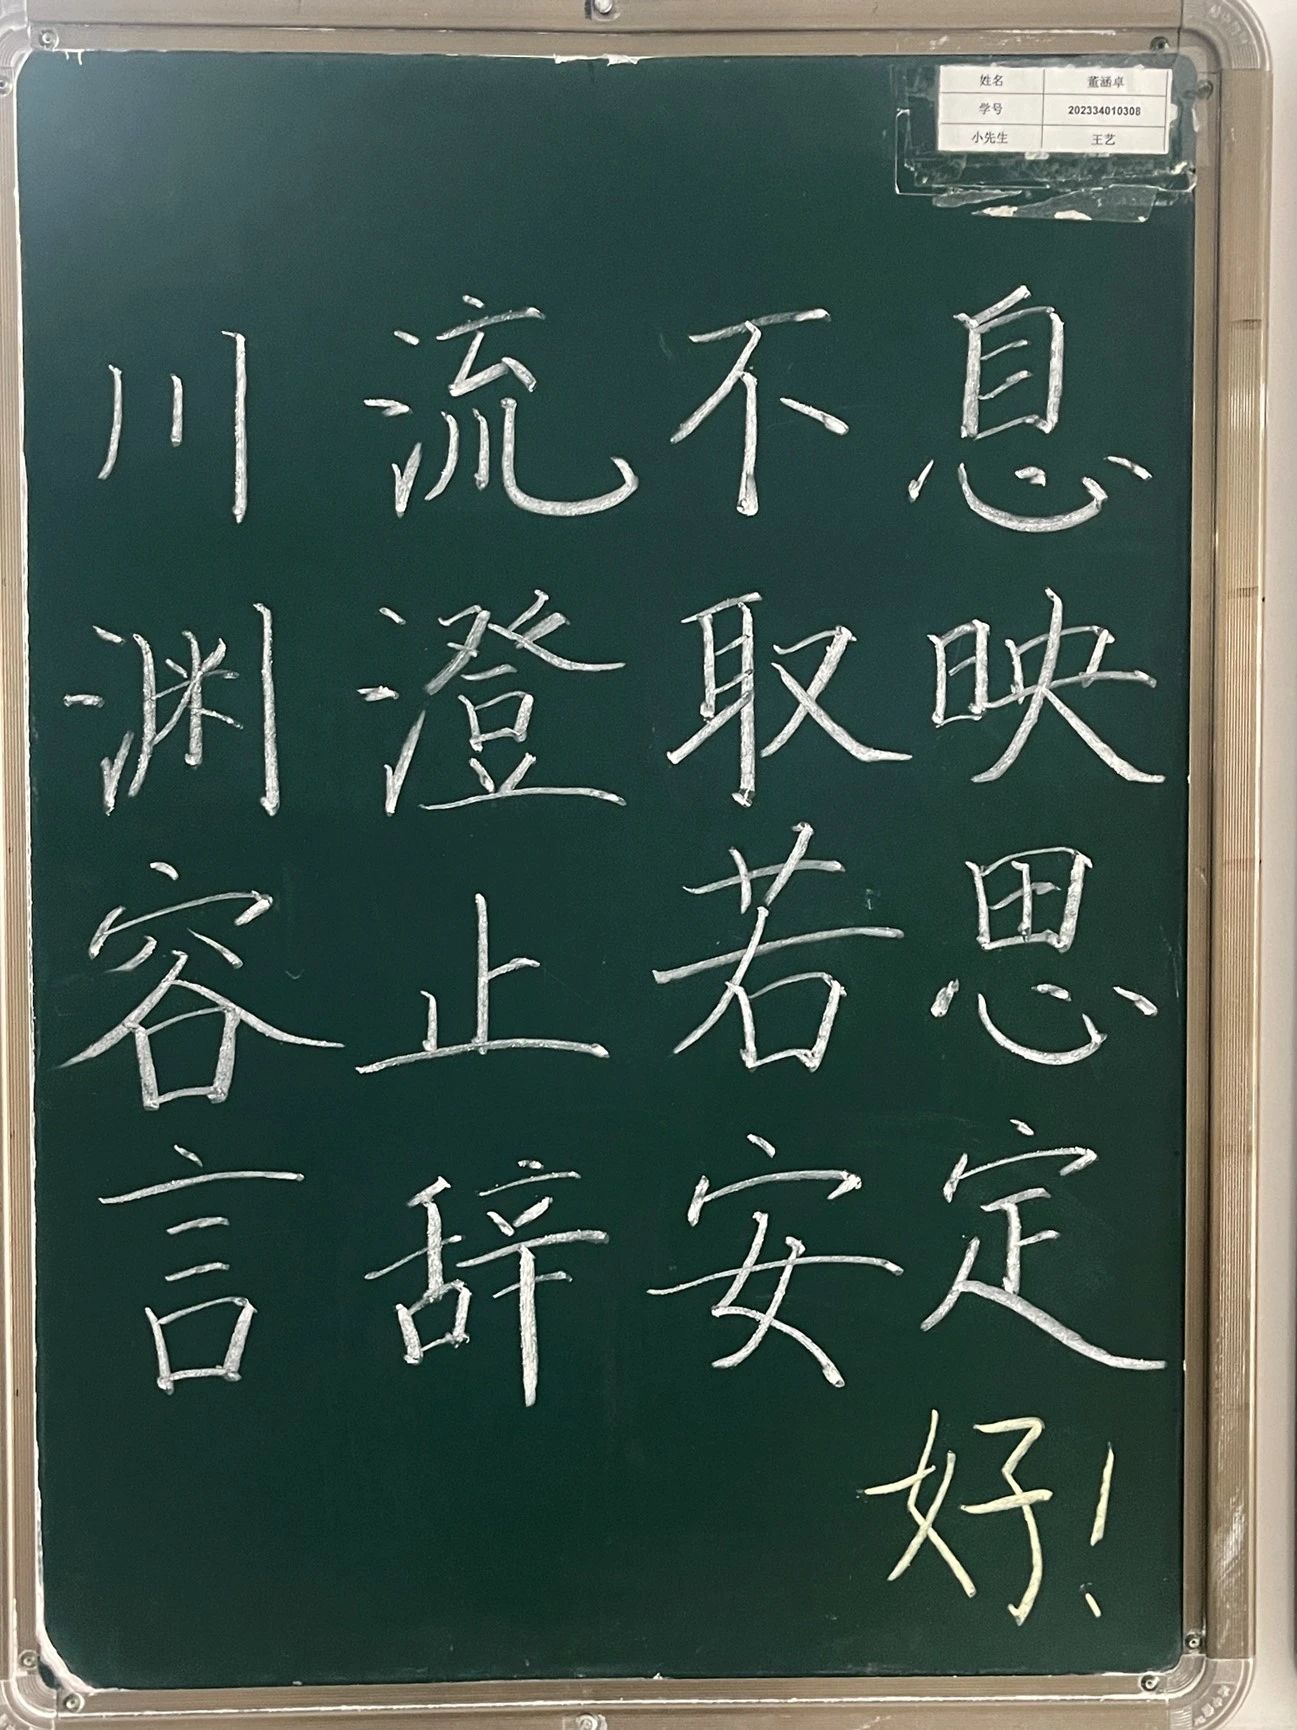 姓名 董涵卓
学号 202334010308
小先生 王艺
川流不息
渊澄取映
容止若思
言辞安定
好!